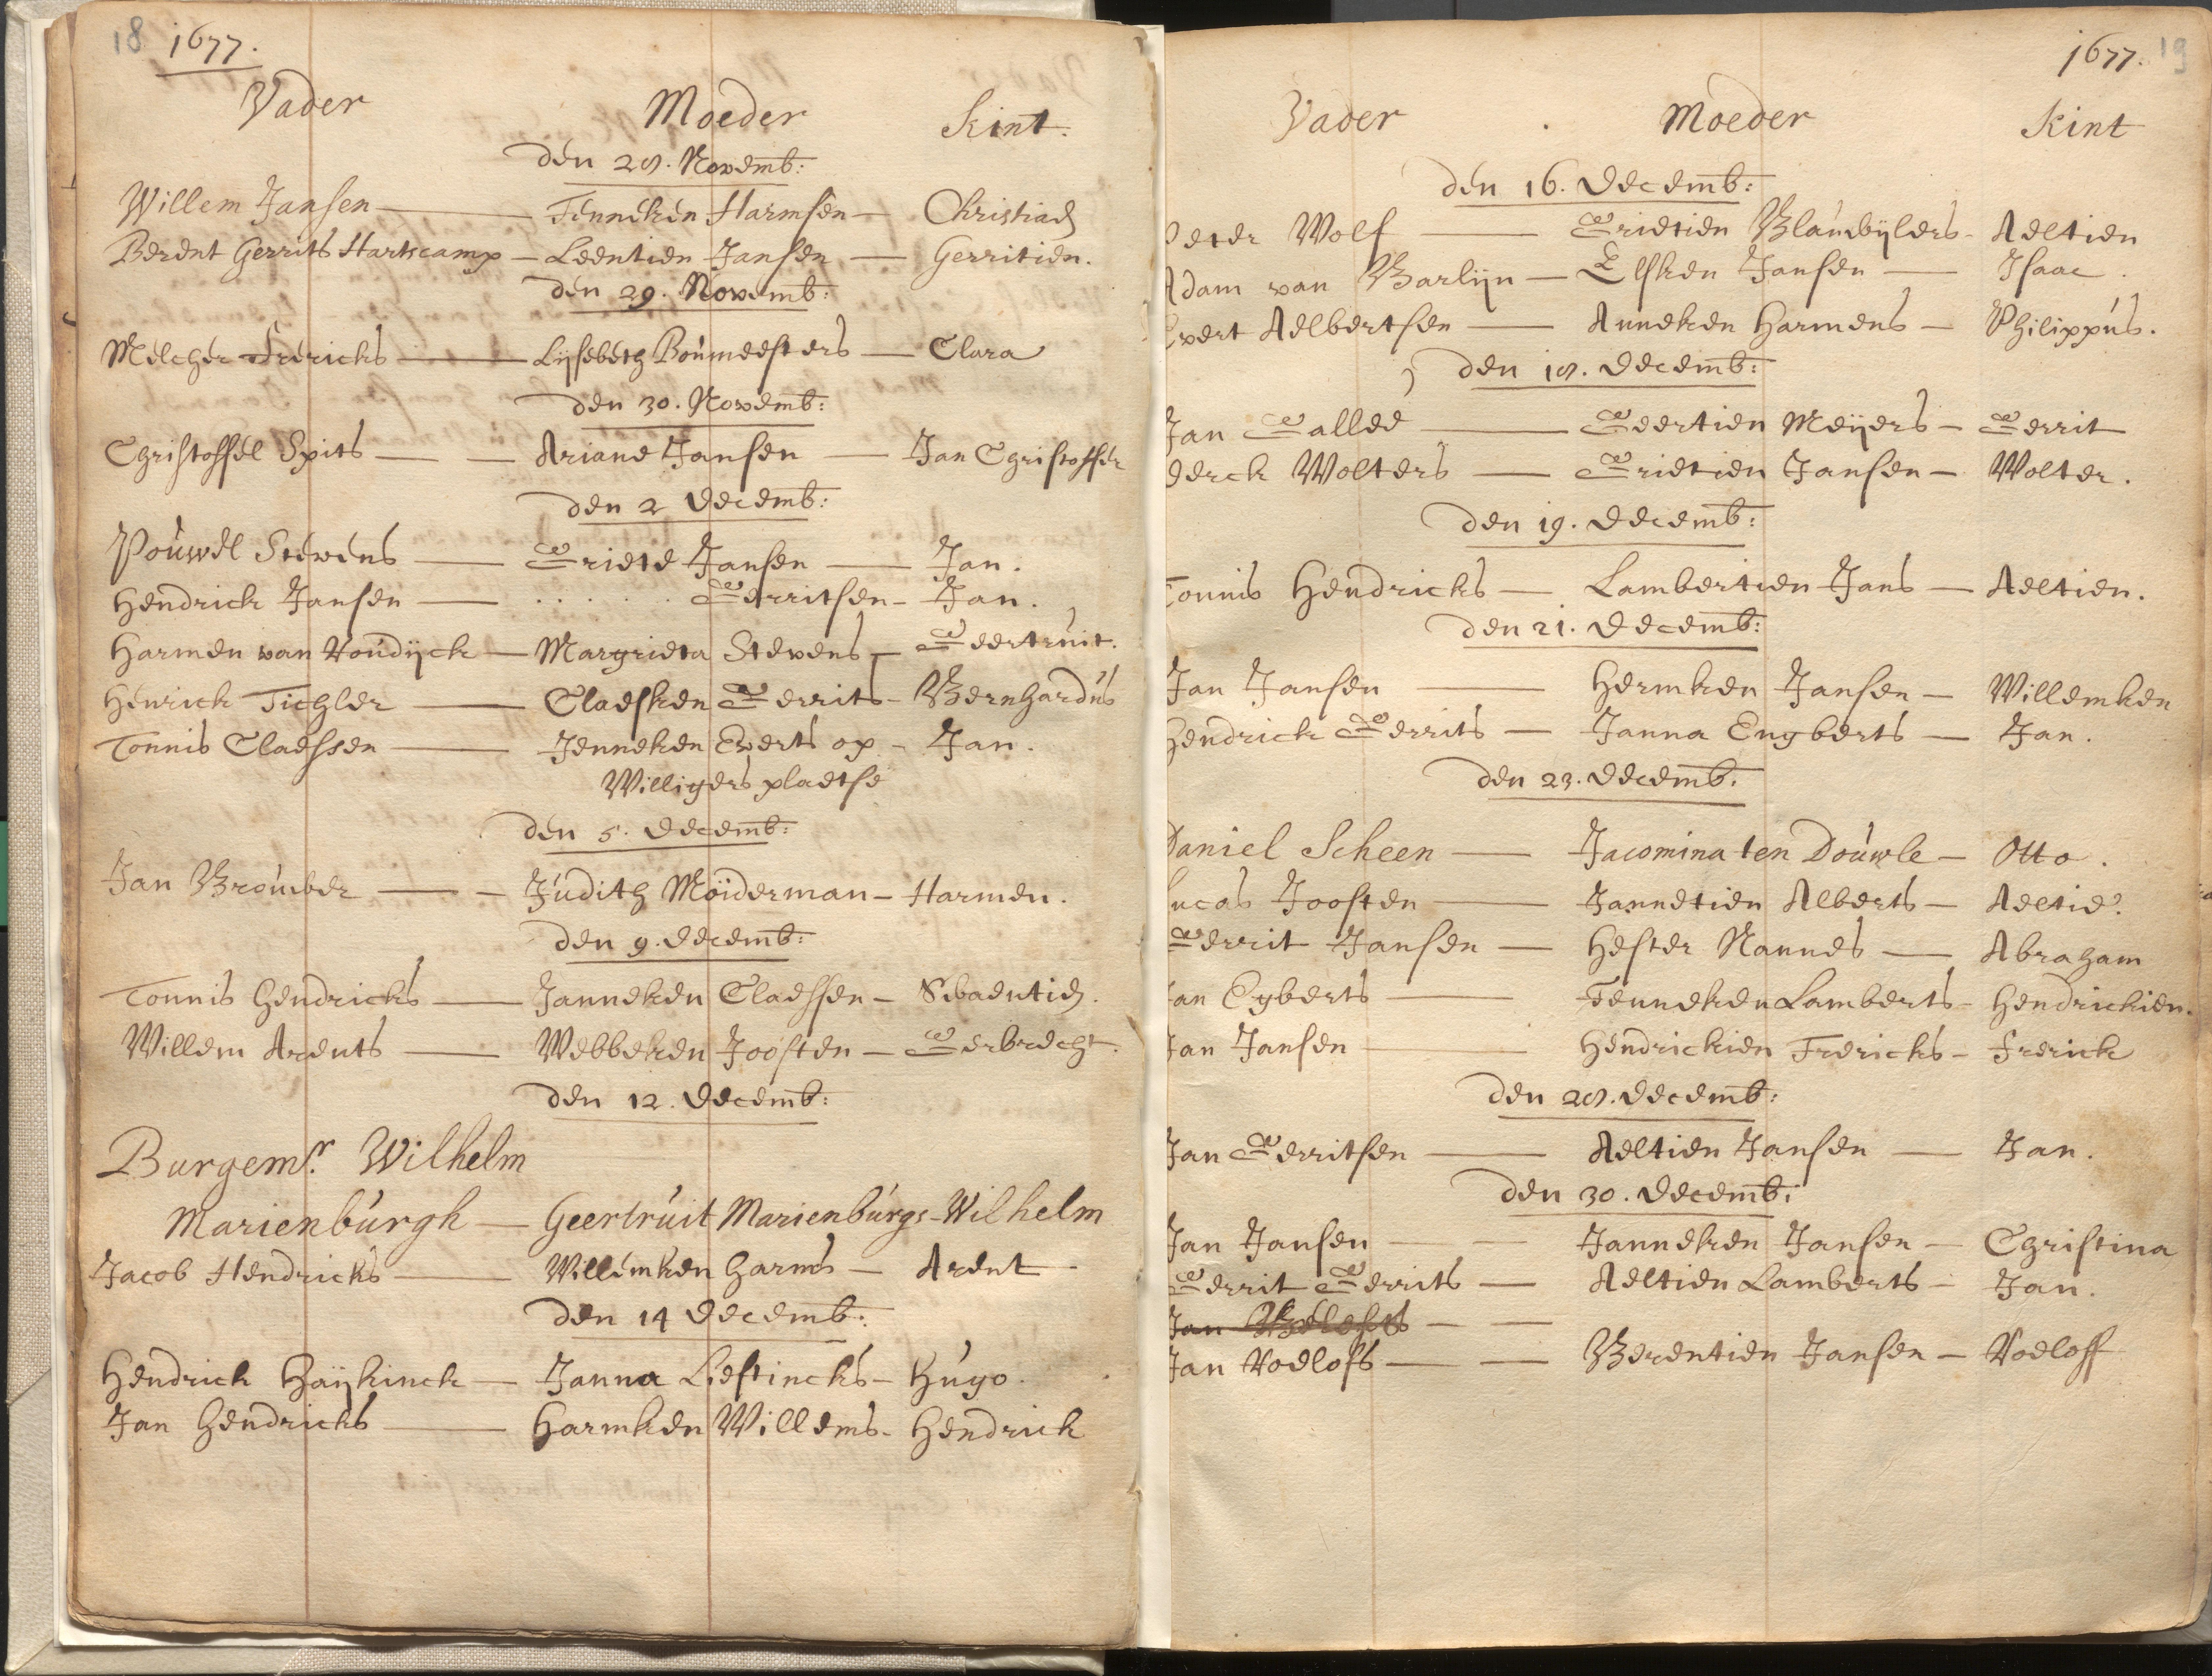 18 1677.
Vader Moeder Kint.
den 28. Novemb:
Willem Jansen — Fenneken Harmsen — Christiaen
Berent Gerrits Hartscamp — Leentien Jansen — Gerritien.
den 29. Novemb:
Melcher Frericks — Lijsebeth Boúmeesters — Clara
den 30. Novemb:
Christoffel Spits — — Ariane Jansen — Jan Christoffer
den 2 Decemb:
Poúwel Stevens — Griete Jansen — Jan.
Hendrick Jansen — . . . . . Gerritsen — Jan.
Harmen van Roúdijck — Margrieta Stevens — Geertruit.
Henrick Tichler — Claesken Gerrits — Bernhardús
Tonnis Claessen — Jenneken Everts op — Jan.
Willigers plaetse
den 5. Decemb:
Jan Broúwer — — Júdith Moiderman — Harmen.
den 9. Decemb:
Tonnis Hendricks — Janneken Claessen — Swaentien.
Willem Arents — Webbeken Joosten — Gerbrecht.
den 12. Decemb:
Burgemr. Wilhelm
Marienbúrgh — Geertrúit Marienbúrgs — Wilhelm
Jacob Hendricks — Willemken Harms — Arent
den 14 Decemb:
Hendrick Haijkinck — Janna Liestincks — Húgo.
Jan Hendricks — Harmken Willems — Hendrick
1677. 19
Vader Moeder Kint
den 16. Decemb:
Peter Wolf — Grietien Blaúwbijlers — Aeltien
Adam van Barlijn — Elsken Jansen — Isaac.
Evert Aelbertsen — Anneken Harmens — Philippús.
den 18. Decemb:
Jan Gallee — Geertien Meijers — Gerrit
Derck Wolters — Grietien Jansen — Wolter.
den 19. Decemb:
Tonnis Hendricks — Lambertien Jans — Aeltien.
den 21. Decemb:
Jan Jansen — Hermken Jansen — Willemken
Hendrick Gerrits — Janna Engberts — Jan.
den 23. Decemb:
Daniel Scheen — Jacomina ten Doúwle — Otto.
Lucas Joosten — Jannetien Alberts — Aeltie.
Gerrit Jansen — Hester Nannes — Abraham
Jan Egberts — Fenneken Lamberts — Hendrickien.
Jan Jansen — Hendrickien Frericks — Frerick
den 28. Decemb:
Jan Gerritsen — Aeltien Jansen — Jan.
den 30. Decemb:
Jan Jansen — — Janneken Jansen — Christina
Gerrit Gerrits — Aeltien Lamberts — Jan.
Jan — —
Jan Roelofs — — Berentien Jansen — Roeloff